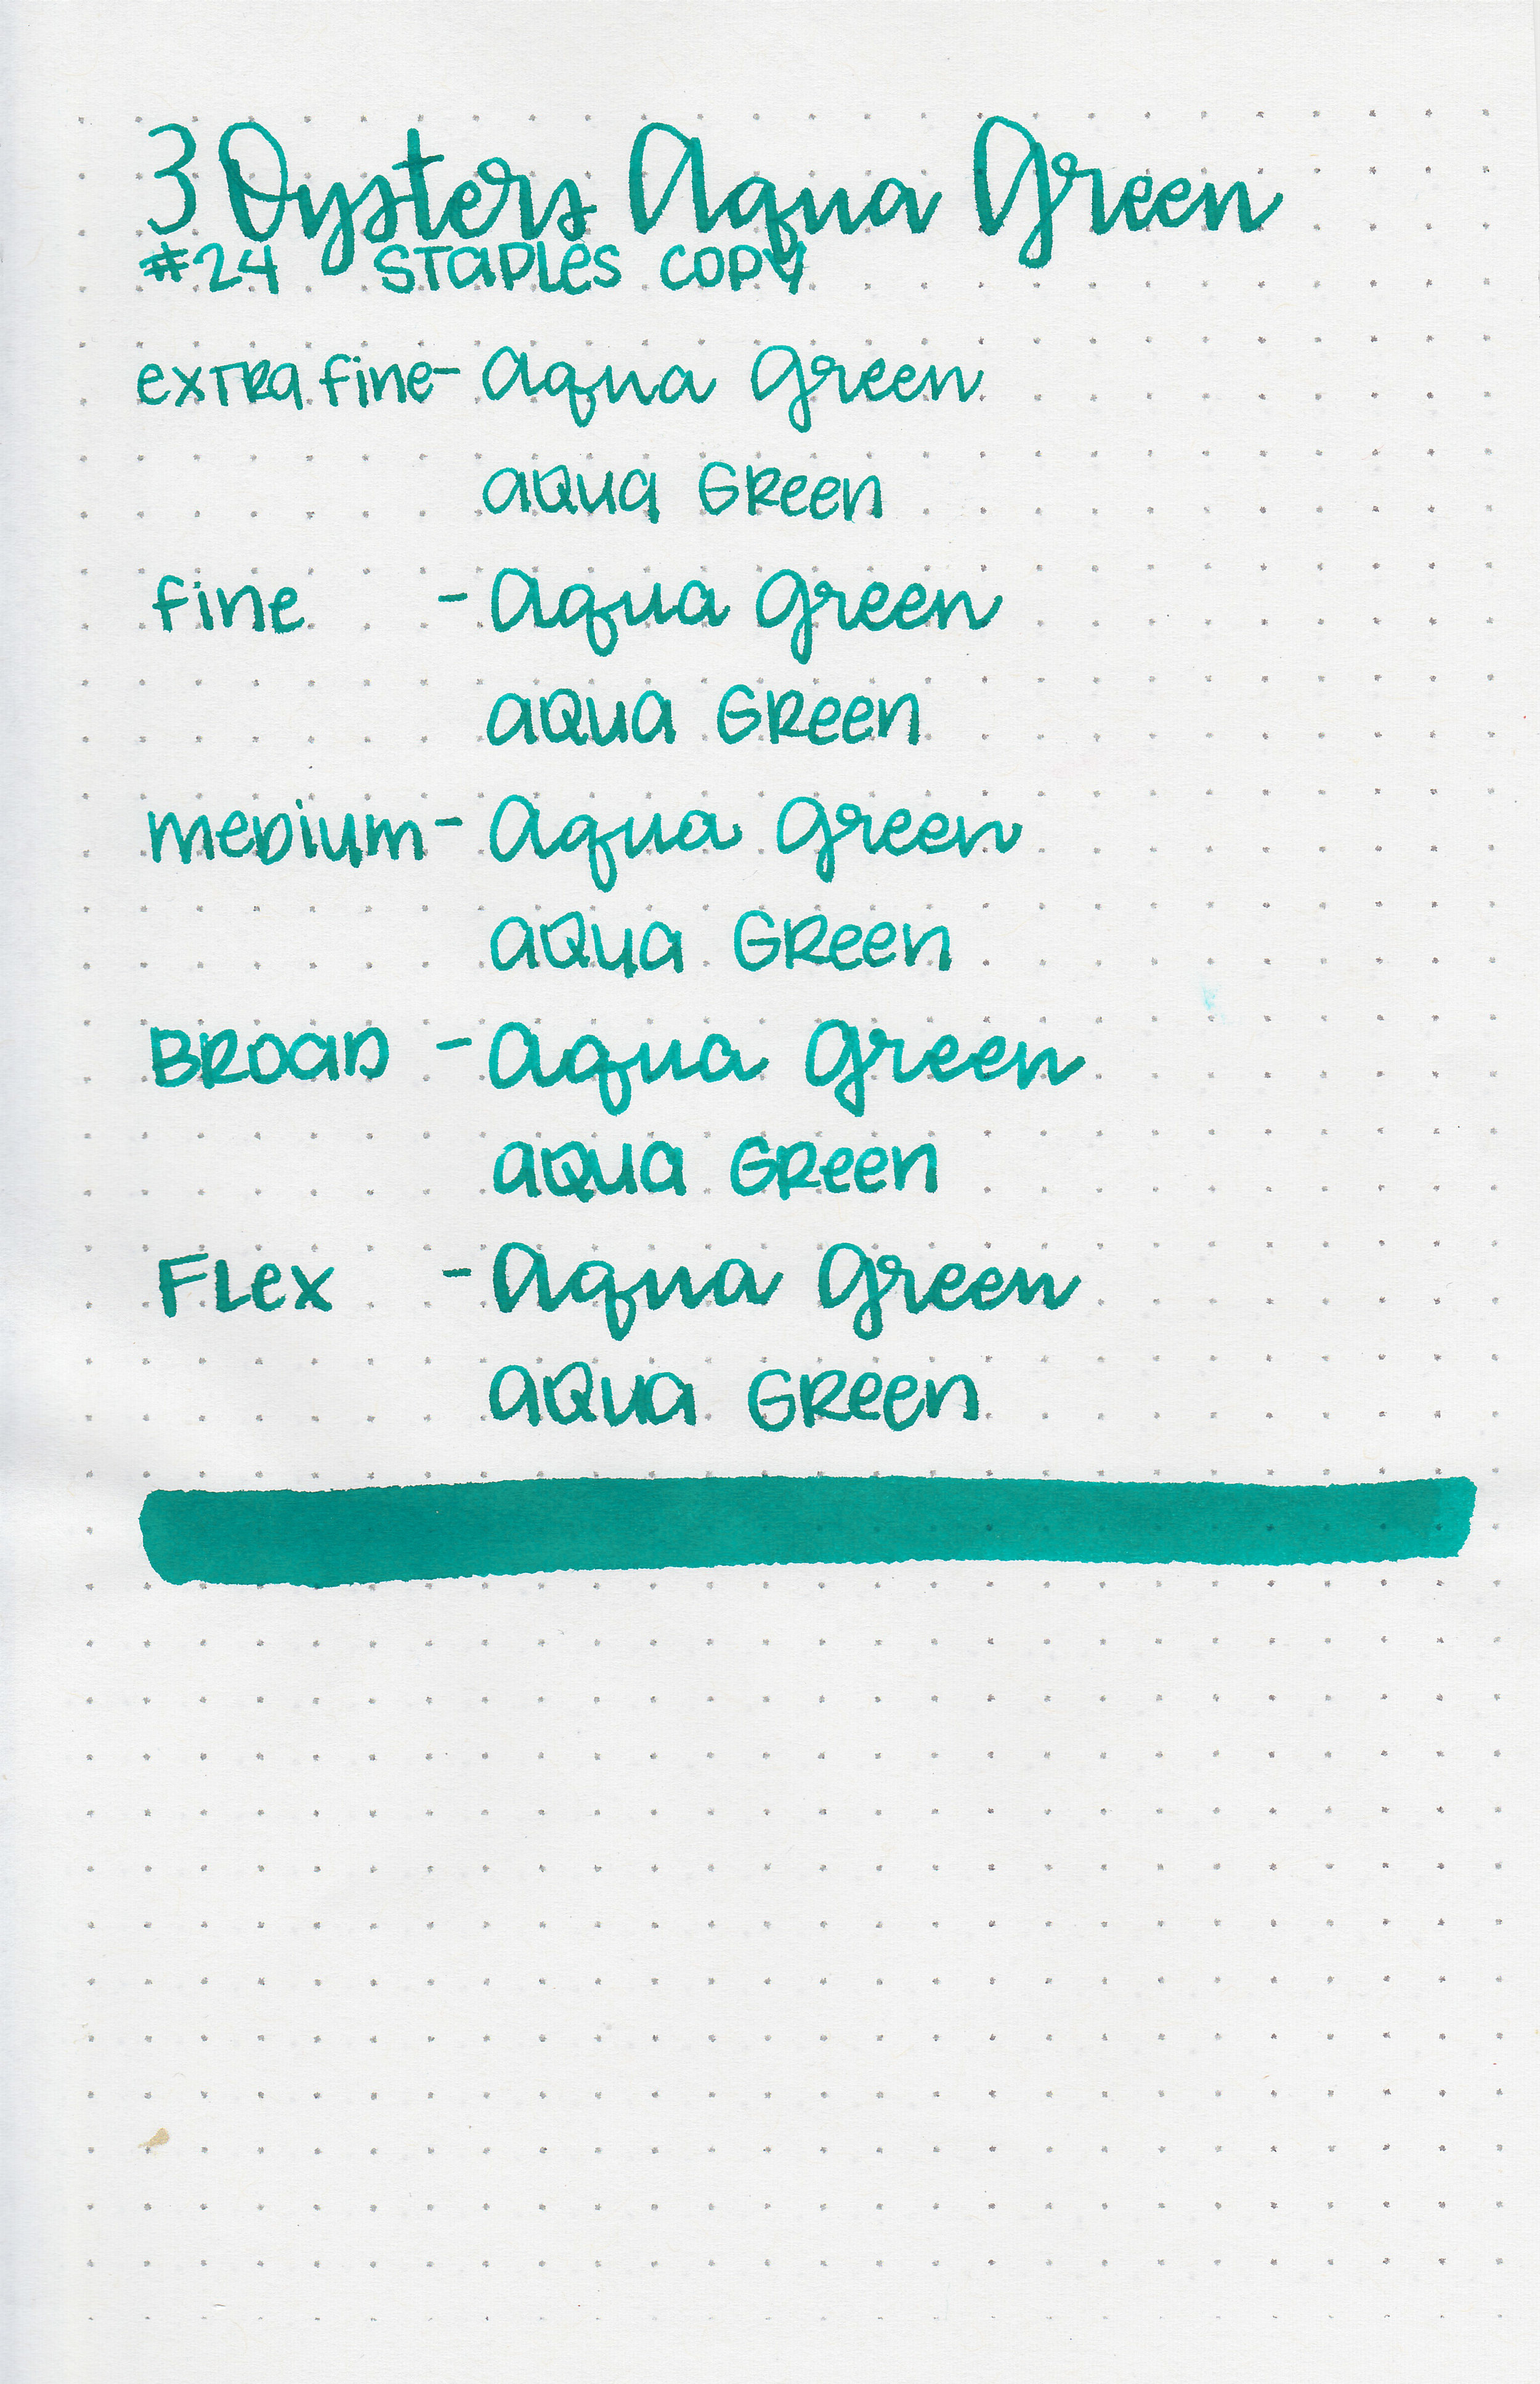 3 Oysters Aqua Green
#24 Staples copy
extra fine - Aqua Green
aqua Green
fine - Aqua Green
aqua Green
medium - Aqua Green
aqua Green
Broad - Aqua Green
aqua Green
Flex - Aqua Green
aqua Green